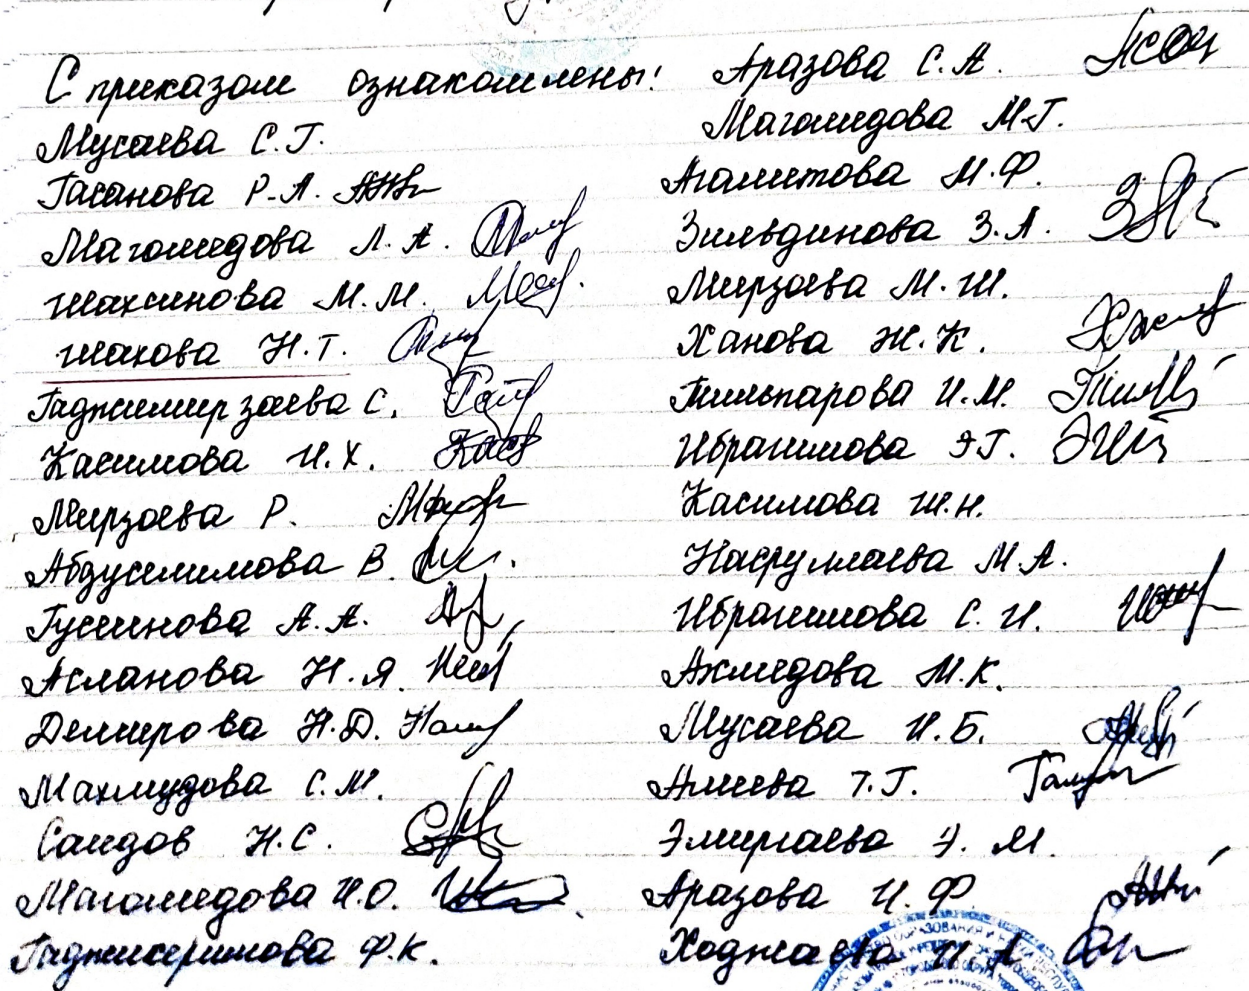 С приказом ознакомлены:
Мусаева С.Г.
Гасанова Р.А.
Магомедова Л.А.
Шахсинова М.М.
Шахова Н.Т.
Гаджимирзаева С.
Касимова И.Х.
Мирзоева Р.
Абдуселимова В.
Гусейнова А.А.
Асланова Н.Я.
Демирова Н.Д.
Махмудова С.М.
Саидов Н.С.
Магомедова И.О.
Гаджикеримова Ф.К.
Аразова С.А.
Магомедова М.Г.
Агамитова М.Ф.
Зильдинова З.А.
Мирзоева М.Ш.
Ханова Ж.К.
Гюльпарова И.М.
Ибрагимова Э.Г.
Касимова Ш.Н.
Насруллаева М.А.
Ибрагимова С.И.
Ахмедова М.К.
Мусаева И.Б.
Алиева Т.Г.
Эмиргаева Э.М.
Аразова И.Ф.
Ходжаева И.А.